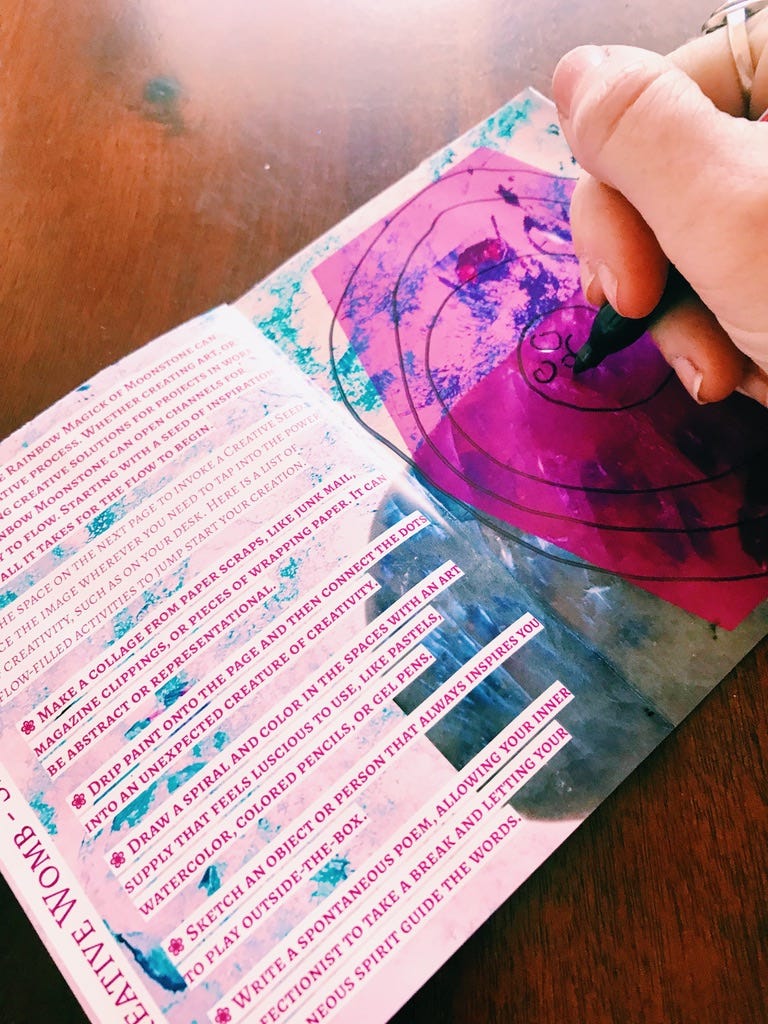 RAINBOW MAGICK OF MOONSTONE CAN
PROCESS. WHETHER CREATING ART, OR
CREATIVE SOLUTIONS FOR PROJECTS IN
MOONSTONE CAN OPEN CHANNELS FOR
TO FLOW. STARTING WITH A SEED OF INSPIRATION
ALL IT TAKES FOR THE FLOW TO BEGIN.
THE SPACE ON THE NEXT PAGE TO INVOKE A CREATIVE SEED
THE IMAGE WHEREVER YOU NEED TO TAP INTO THE POWER
CREATIVITY, SUCH AS ON YOUR DESK. HERE IS A LIST OF
FLOW-FILLED ACTIVITIES TO JUMP START YOUR CREATION.
MAKE A COLLAGE FROM PAPER SCRAPS, LIKE JUNK MAIL,
MAGAZINE CLIPPINGS, OR PIECES OF WRAPPING PAPER. IT CAN
BE ABSTRACT OR REPRESENTATIONAL.
DRIP PAINT ONTO THE PAGE AND THEN CONNECT THE DOTS
INTO AN UNEXPECTED CREATURE OF CREATIVITY.
DRAW A SPIRAL AND COLOR IN THE SPACES WITH AN ART
SUPPLY THAT FEELS LUSCIOUS TO USE, LIKE PASTELS,
WATERCOLOR, COLORED PENCILS, OR GEL PENS.
SKETCH AN OBJECT OR PERSON THAT ALWAYS INSPIRES YOU
TO PLAY OUTSIDE-THE-BOX.
WRITE A SPONTANEOUS POEM, ALLOWING YOUR INNER
TO TAKE A BREAK AND LETTING YOUR
SPIRIT GUIDE THE WORDS.
WOMB -